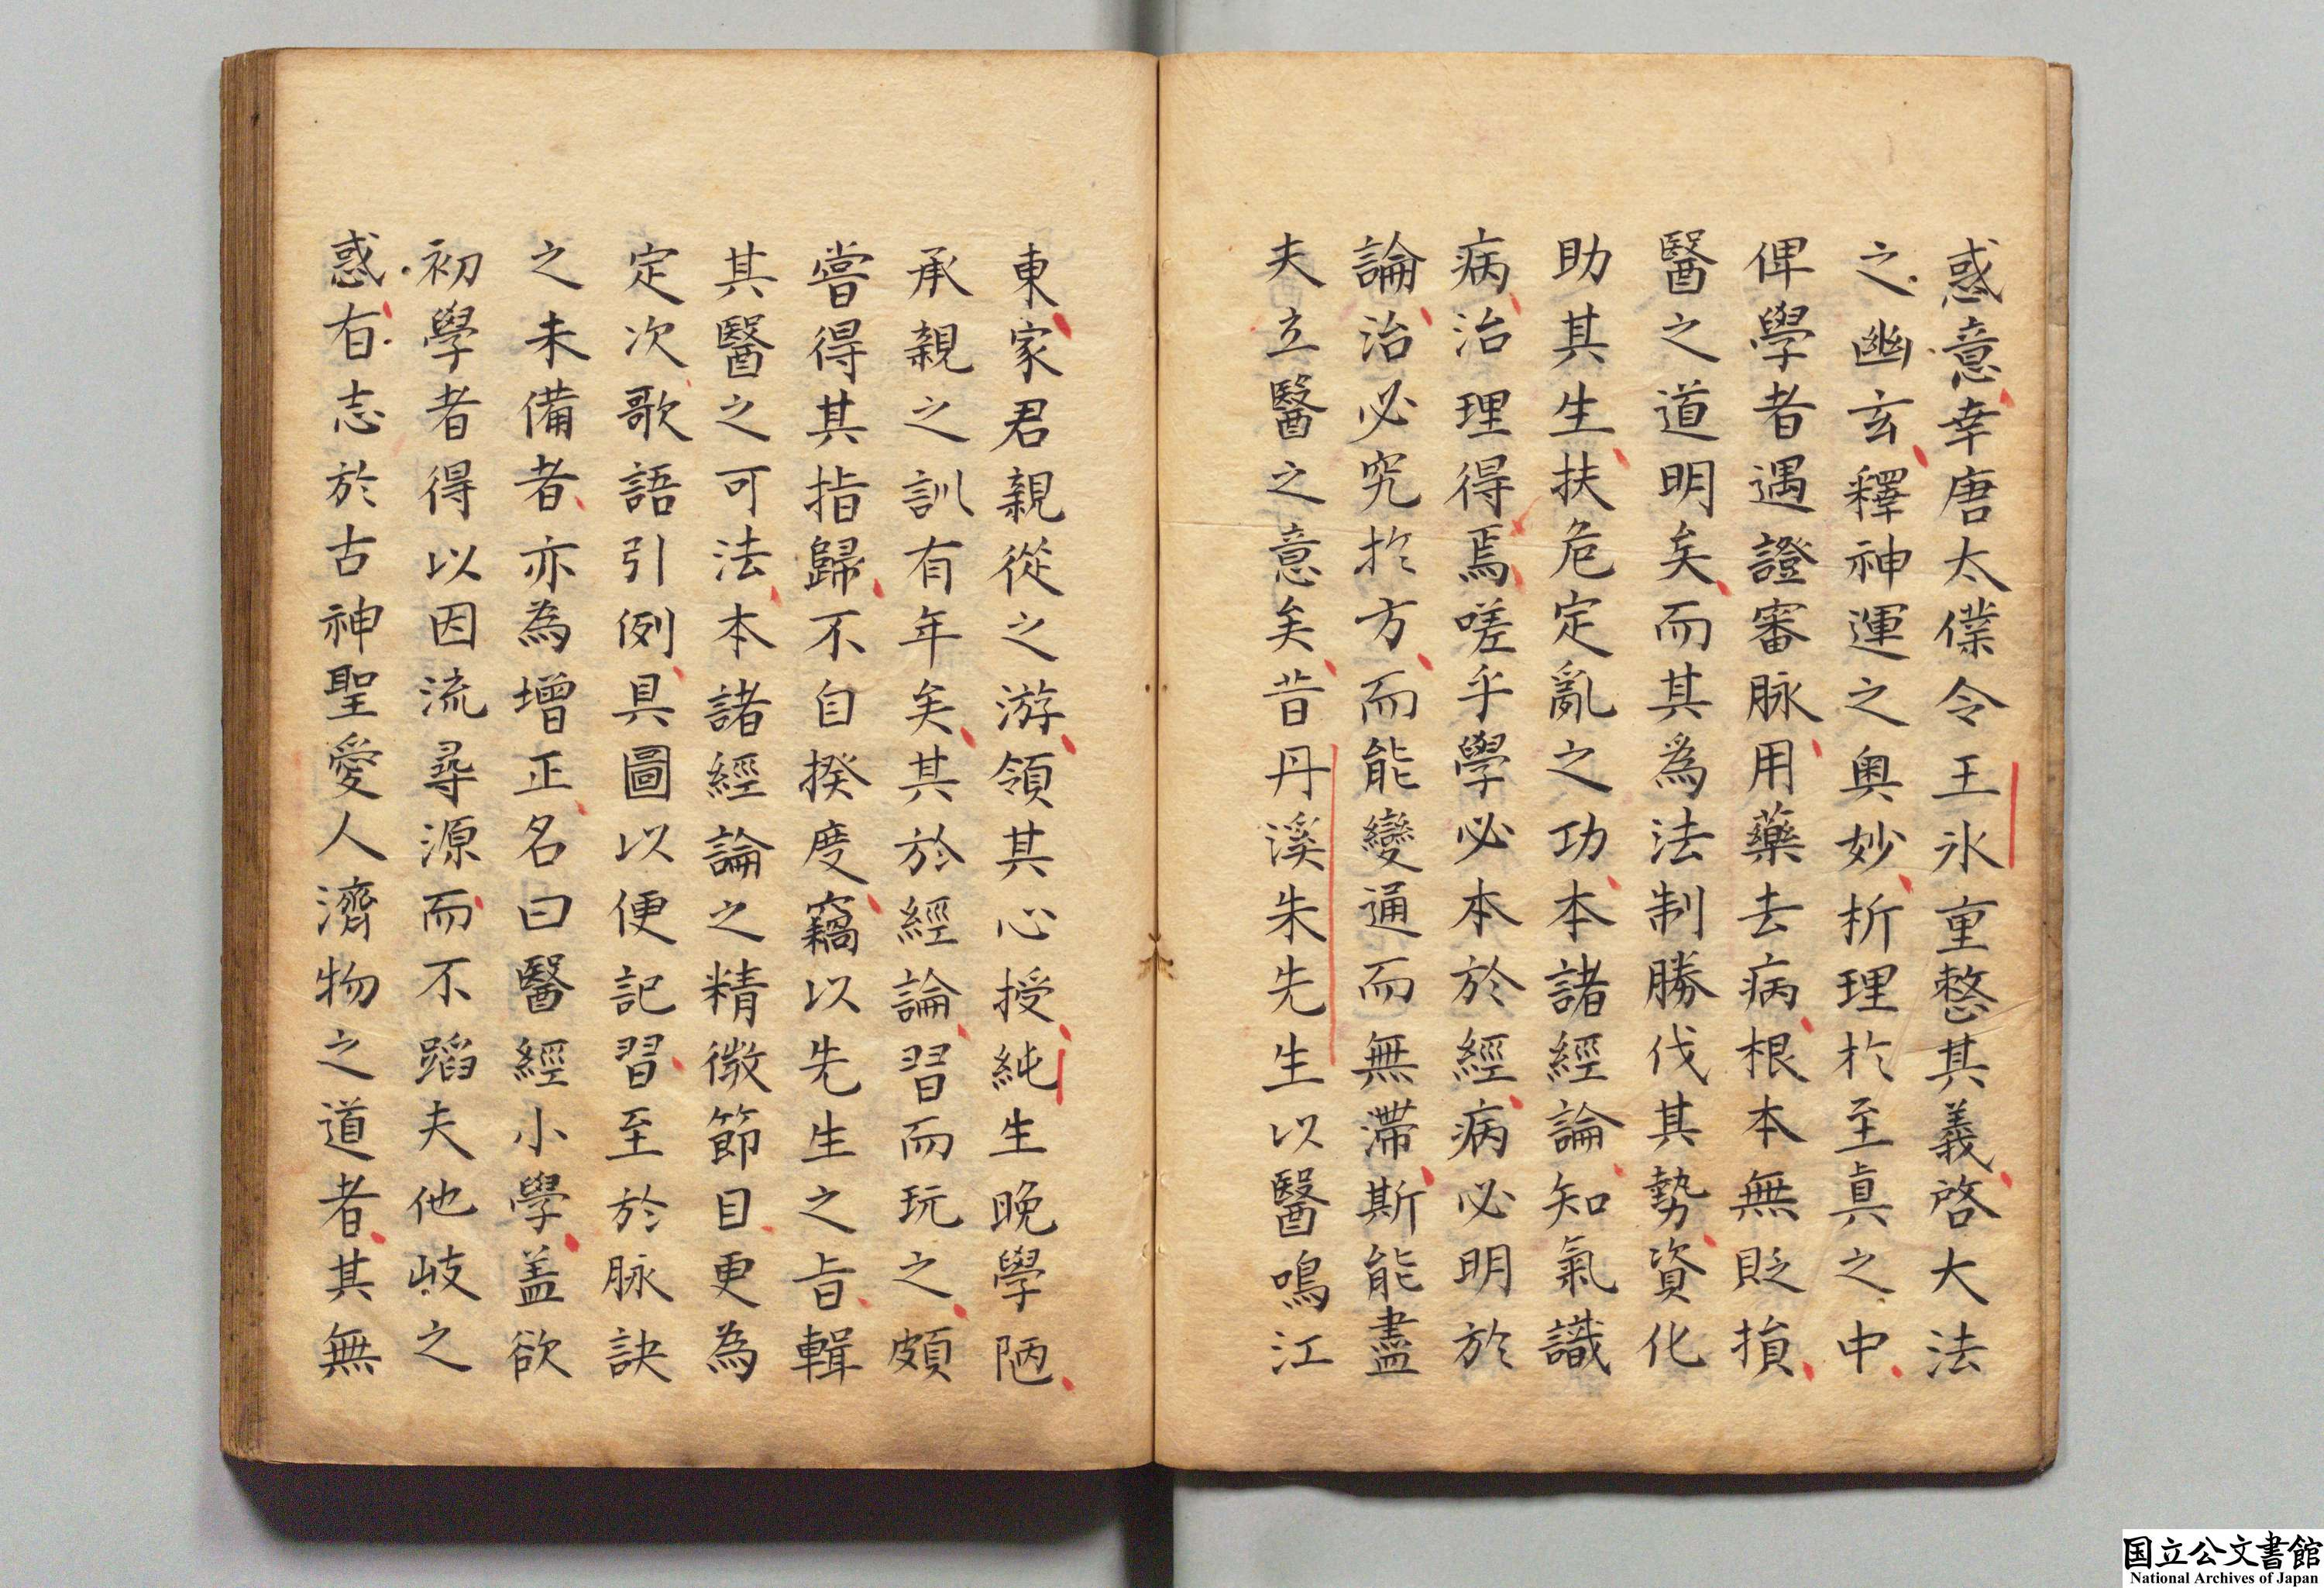 惑意幸唐太僕令王氷重整其義啓大法
之幽玄釋神運之奥妙析理於至真之中
俾學者遇證審脉用藥去病根本無貶損
醫之道明矣而其為法制勝伐其勢資化
助其生扶危定亂之功本諸經論知氣識
病治理得焉嗟乎學必本於經病必明於
論治必究於方而能變通而無滯斯能盡
夫立醫之意矣昔丹溪朱先生以醫鳴江
東家君親從之游領其心授純生晚學陋
承親之訓有年矣其於經論習而玩之頗
嘗得其指歸不自揆度竊以先生之旨輯
其醫之可法本諸經論之精微節目更為
定次歌語引例具圖以便記習至於脉訣
之未備者亦為增正名曰醫經小學盖欲
初學者得以因流尋源而不蹈夫他岐之
惑有志於古神聖愛人濟物之道者其無
国立公文書館
National Archives of Japan